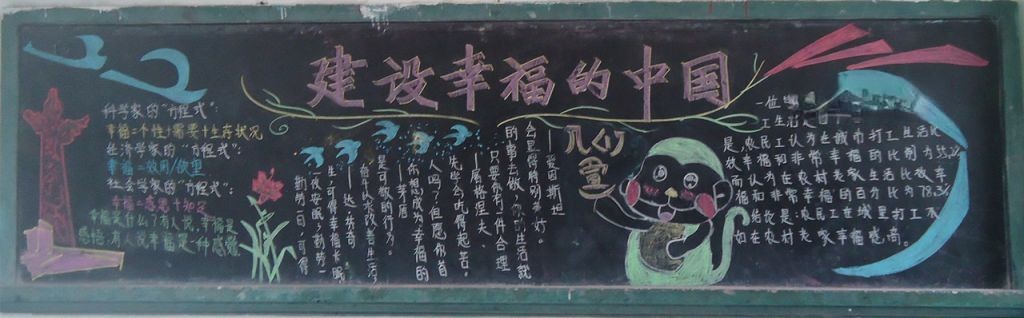 建设幸福的中国
科学家的"方程式":
幸福=个性+需要+生存状况
经济学家的"方程式":
幸福=效用/欲望
社会学家的"方程式":
幸福=感恩+知足
幸福是什么?有人说,幸福是
感悟;有人说幸福是一种感觉
——爱因斯坦
会显得特别美好。
的事去做,你的生活就
只要你有一件合理
——屠格涅夫
先学会吃得起苦。
人吗?但愿你首
你想成为幸福的
——茅盾
是可敬的行为。
奋斗以求改善生活,
——达·芬奇
生,可得幸福长眠
一夜安眠;勤劳一
勤劳一日,可得
一位
工生活
是,农民工认为在城市打工生活比
较幸福和非常幸福的比例为
而认为在农村老家生活比较幸
福和非常幸福的百分比为78.3%
结论是:农民工在城里打工不
如在农村老家幸福感高。